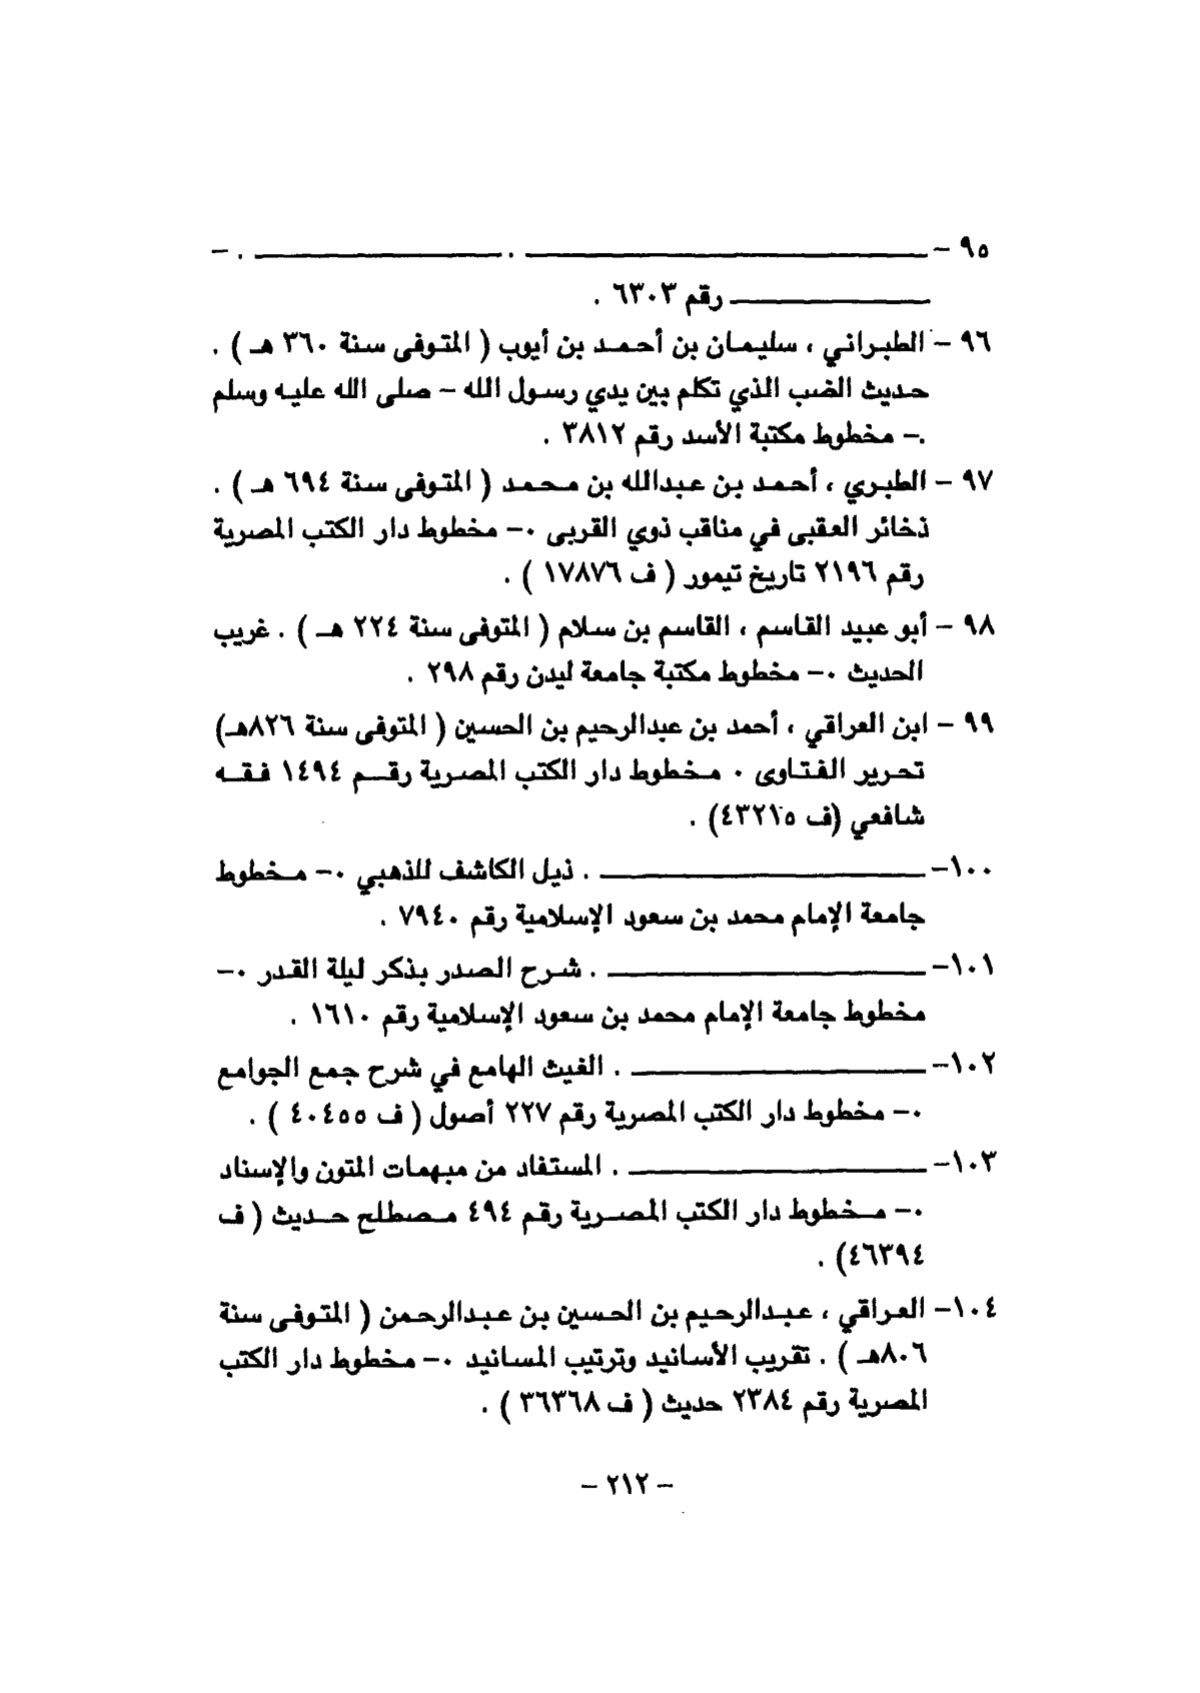 ٩٥ – ــــــــــــــــــــــــ . ــــــــــــــــــــــــ . –
ــــــــــــــــــــــــ رقم ٦٣٠٣ .
٩٦ – الطبراني ، سليمان بن أحمد بن أيوب ( المتوفى سنة ٣٦٠ هـ ) .
حديث الضب الذي تكلم بين يدي رسول الله – صلى الله عليه وسلم
.– مخطوط مكتبة الأسد رقم ٣٨١٢ .
٩٧ – الطبري ، أحمد بن عبدالله بن محمد ( المتوفى سنة ٦٩٤ هـ ) .
ذخائر العقبى في مناقب ذوي القربى .– مخطوط دار الكتب المصرية
رقم ٢١٩٦ تاريخ تيمور ( ف ١٧٨٧٦ ) .
٩٨ – أبو عبيد القاسم ، القاسم بن سلام ( المتوفى سنة ٢٢٤ هـ ) . غريب
الحديث .– مخطوط مكتبة جامعة ليدن رقم ٢٩٨ .
٩٩ – ابن العراقي ، أحمد بن عبدالرحيم بن الحسين ( المتوفى سنة ٨٢٦هـ)
تحرير الفتاوى . مخطوط دار الكتب المصرية رقم ١٤٩٤ فقه
شافعي (ف ٤٣٢١٥) .
١٠٠– ــــــــــــــــــــــــ . ذيل الكاشف للذهبي .– مخطوط
جامعة الإمام محمد بن سعود الإسلامية رقم ٧٩٤٠ .
١٠١– ــــــــــــــــــــــــ . شرح الصدر بذكر ليلة القدر .–
مخطوط جامعة الإمام محمد بن سعود الإسلامية رقم ١٦١٠ .
١٠٢– ــــــــــــــــــــــــ . الغيث الهامع في شرح جمع الجوامع
.– مخطوط دار الكتب المصرية رقم ٢٢٧ أصول ( ف ٤٠٤٥٥ ) .
١٠٣– ــــــــــــــــــــــــ . المستفاد من مبهمات المتون والإسناد
.– مخطوط دار الكتب المصرية رقم ٤٩٤ مصطلح حديث ( ف
٤٦٣٩٤) .
١٠٤– العراقي ، عبدالرحيم بن الحسين بن عبدالرحمن ( المتوفى سنة
٨٠٦هـ ) . تقريب الأسانيد وترتيب المسانيد .– مخطوط دار الكتب
المصرية رقم ٢٣٨٤ حديث ( ف ٣٦٣٦٨ ) .
– ٢١٢ –